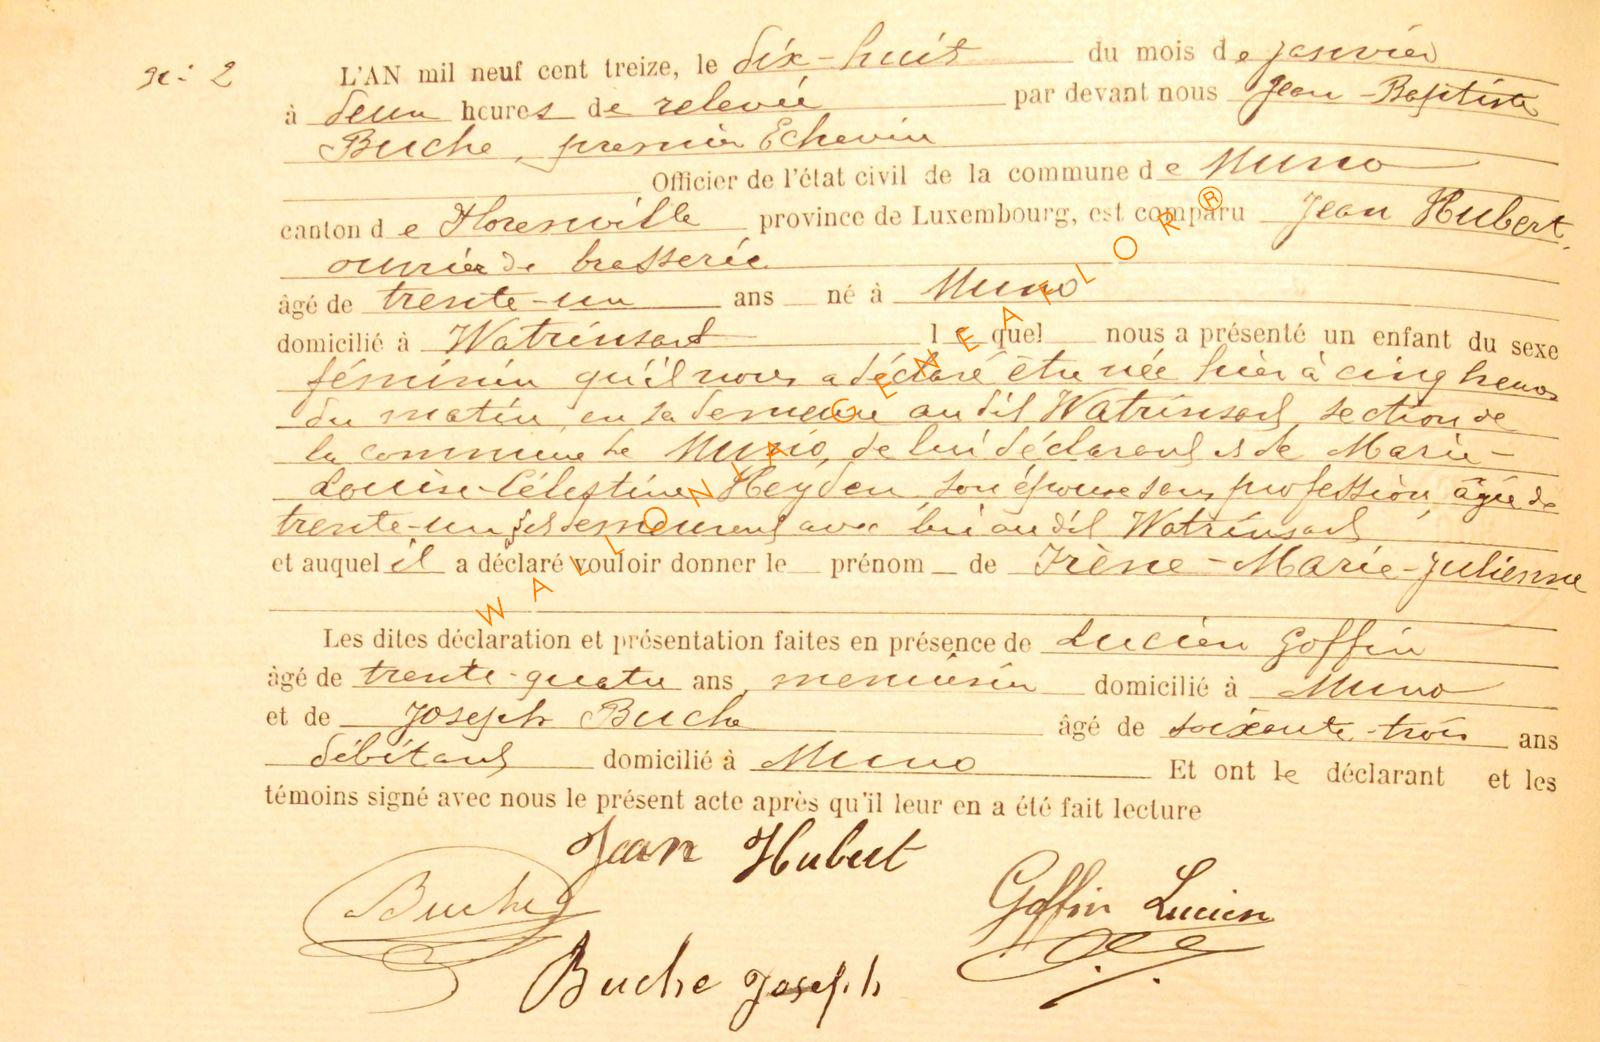 N° 2
L'AN mil neuf cent treize, le dix-huit du mois de janvier
à deux heures de relevée par devant nous Jean-Baptiste
Buche, premier Echevin
Officier de l'état civil de la commune de Muno
canton de Florenville province de Luxembourg, est comparu Jean Hubert,
ouvrier de brasserie
âgé de trente-un ans né à Muno
domicilié à Watrinsart lequel nous a présenté un enfant du sexe
féminin qu'il nous a déclaré être née hier à cinq heures
du matin, en sa demeure au dit Watrinsart section de
la commune de Muno, de lui déclarant et de Marie-
Louise-Célestine Heyden, son épouse sans profession, âgée de
trente-un demeurant avec lui au dit Watrinsart
et auquel il a déclaré vouloir donner le prénom de Irène-Marie-Julienne
Les dites déclaration et présentation faites en présence de Lucien Goffin
âgé de trente-quatre ans, menuisier domicilié à Muno
et de Joseph Buche âgé de soixante-trois ans
débitant domicilié à Muno Et ont le déclarant et les
témoins signé avec nous le présent acte après qu'il leur en a été fait lecture
Jean Hubert
Buche
Goffin Lucien
Buche Joseph
WALLONIA GENEAFLOR ®